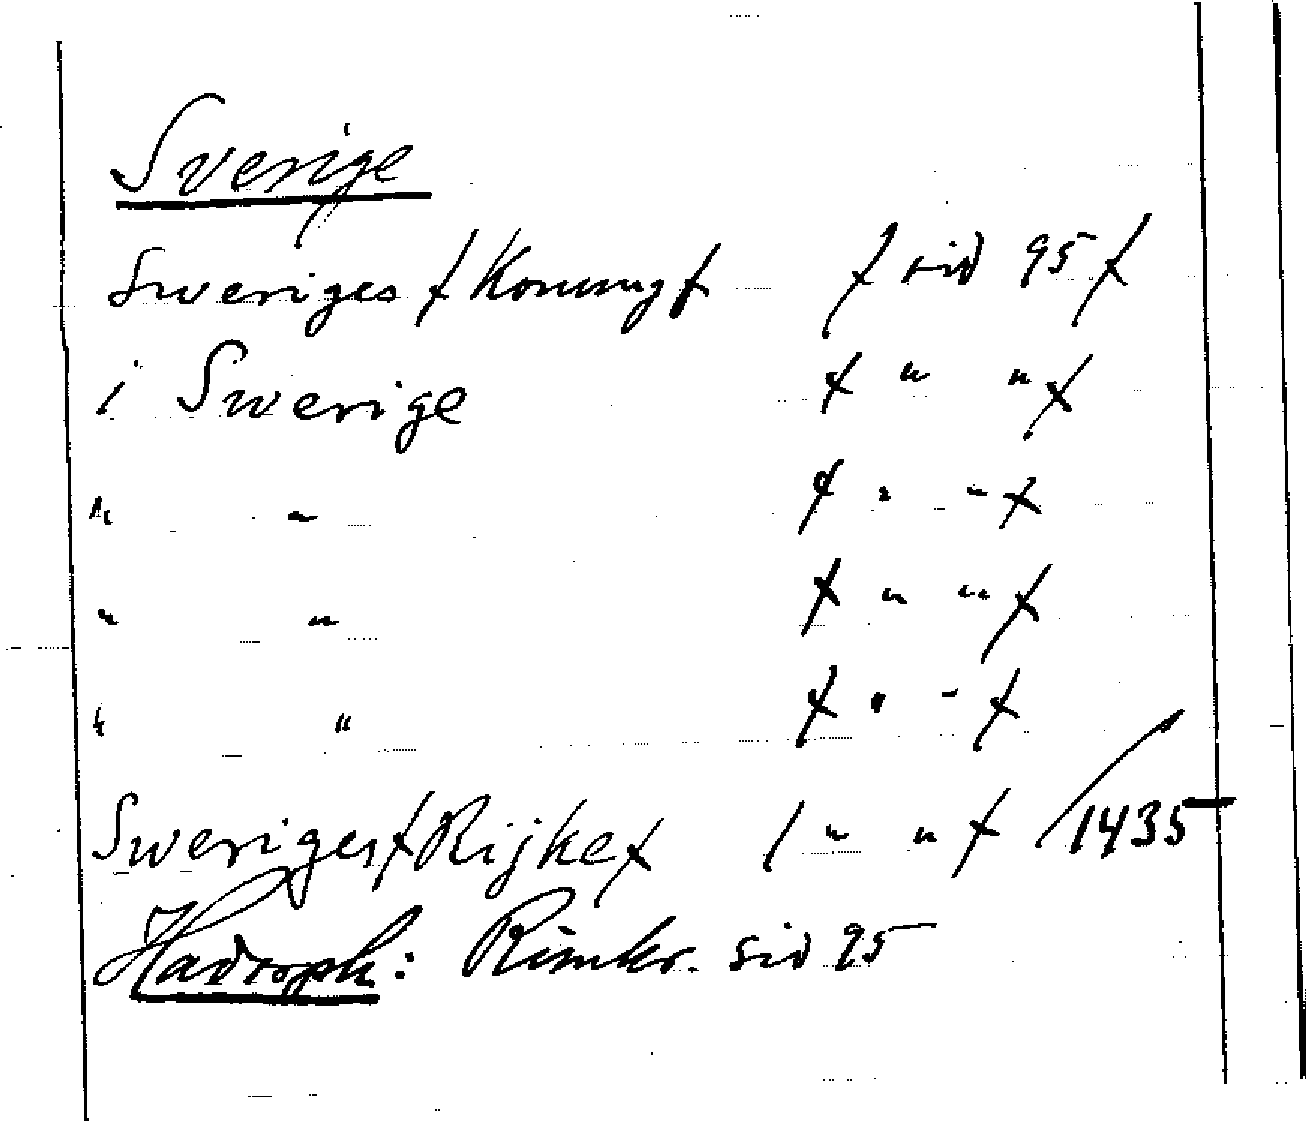 Sverige
Sweriges /Konung/ / sid 95 /
i Swerige / " " /
" " / " " /
" " / " " /
" " / " " /
Sweriges /Rijke/ / " " / /1435
Hadorph: Rimkr. sid 95